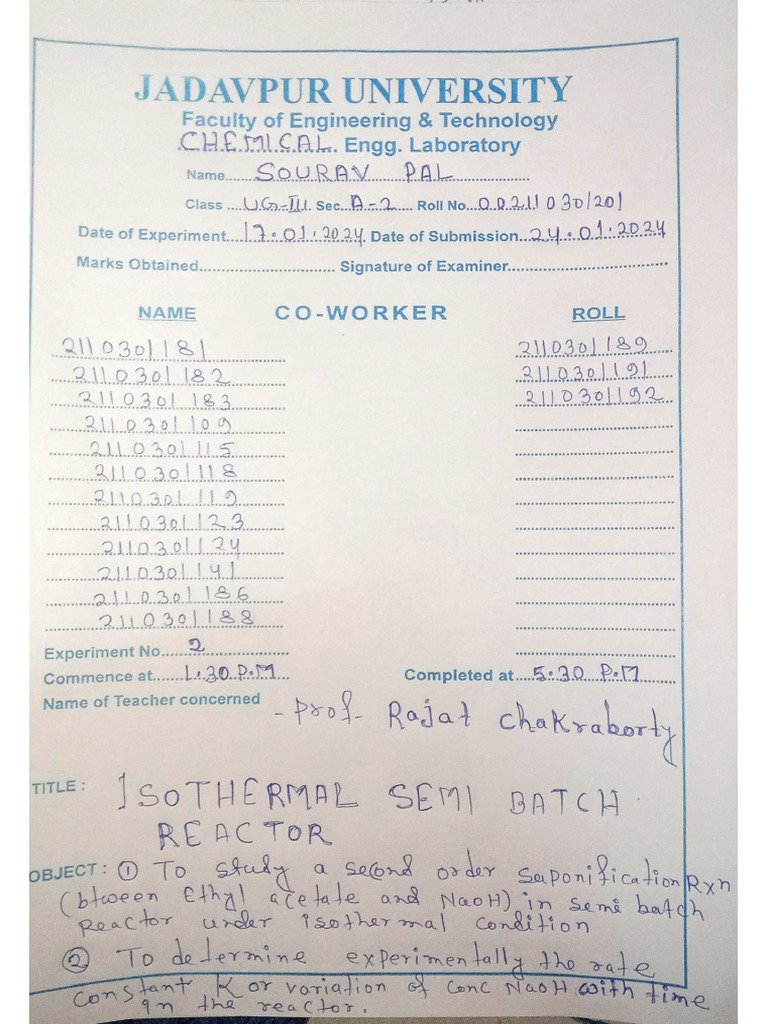 JADAVPUR UNIVERSITY
Faculty of Engineering & Technology
CHEMICAL Engg. Laboratory
Name SOURAV PAL
Class UG-III Sec. A-2 Roll No. 00211030/201
Date of Experiment 17.01.2024 Date of Submission 24.01.2024
Marks Obtained Signature of Examiner
NAME CO-WORKER ROLL
2110301181 2110301189
2110301182 2110301191
2110301183 2110301192
2110301109
2110301115
2110301118
2110301119
2110301123
2110301124
2110301141
2110301186
2110301188
Experiment No. 2
Commence at 1.30 P.M Completed at 5.30 P.M
Name of Teacher concerned
- Prof- Rajat Chakraborty
TITLE : ISOTHERMAL SEMI BATCH
REACTOR
OBJECT : ① To study a second order saponification Rxn
(btween Ethyl acetate and NaOH) in semi batch
Reactor under isothermal condition
② To determine experimentally the rate
constant K or variation of conc NaOH with time
in the reactor.